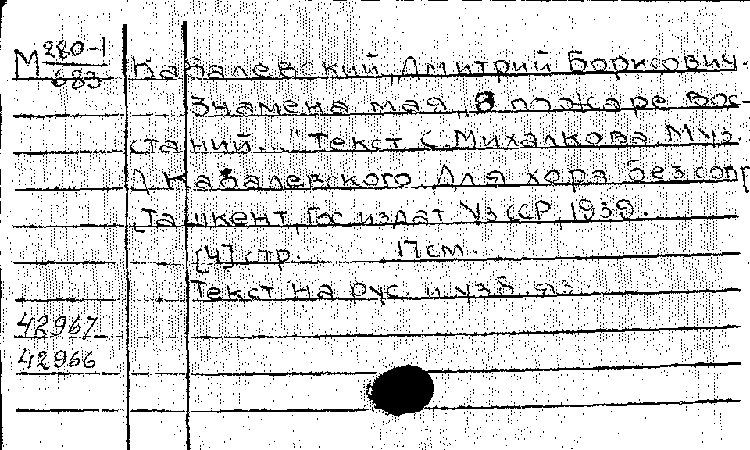 М 280-1
683
Кабалевский, Дмитрий Борисович.
Знамена мая, В пожаре вос
станий... Текст С. Михалкова, Муз.
Д. Кабалевского. Для хора без сопр
Ташкент, Гос издат УзССР, 1939.
[4] стр. 17 см.
Текст на рус. и узб. яз.
42967
42966